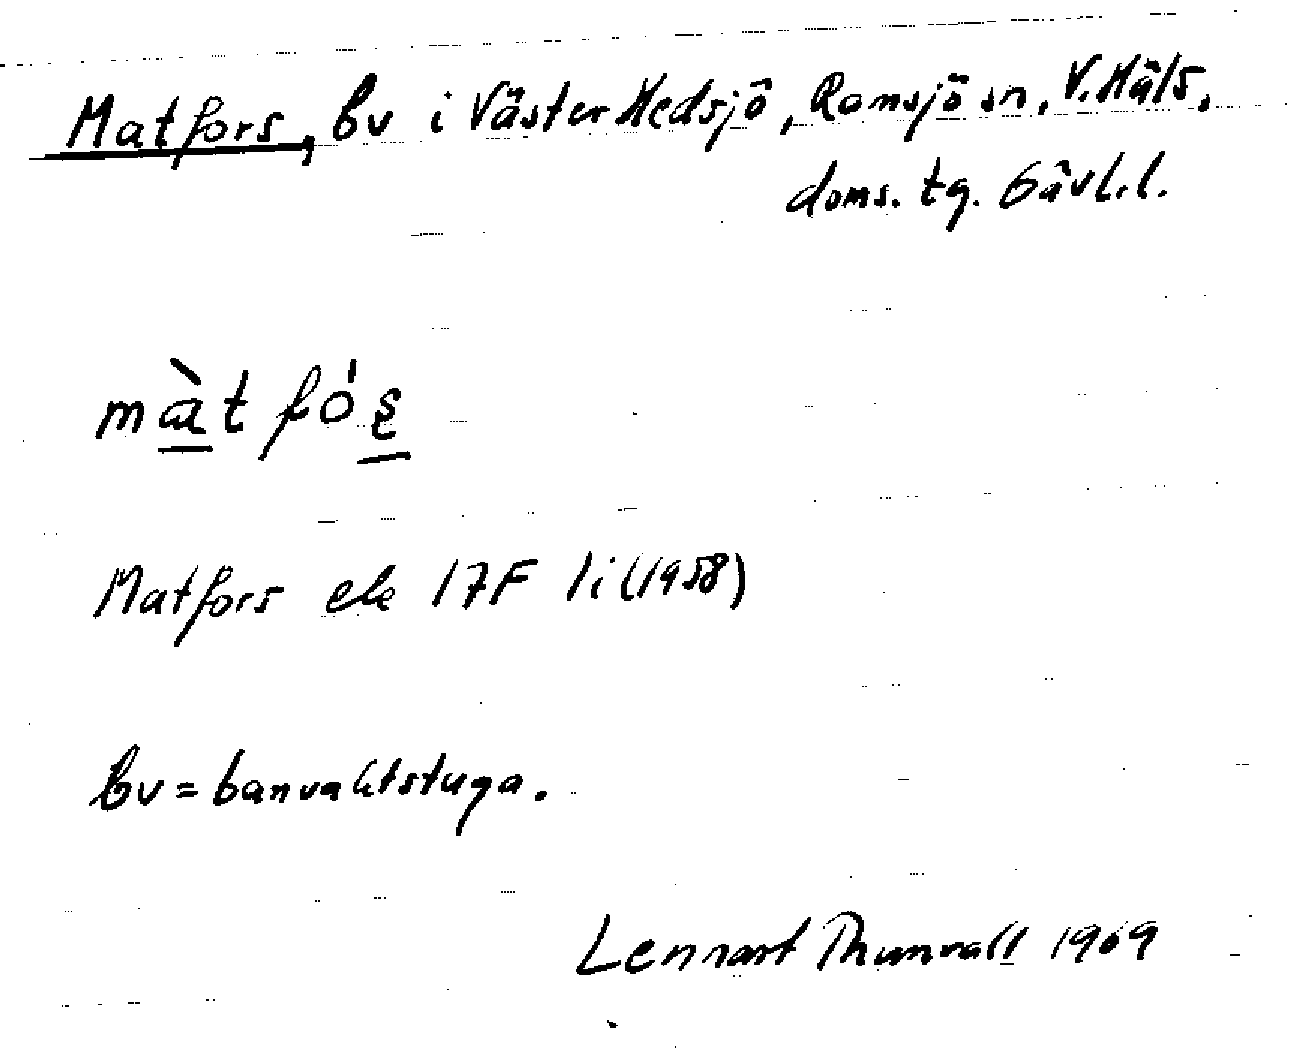 Matfors, bv i Väster Hedsjö, Ramsjö sn, V. Häls.
doms. tg. Gävl.l.
màt fo̍ʂ
Matfors ek 17F 1i (1958)
bv = banvaktstuga.
Lennart Thunvall 1969